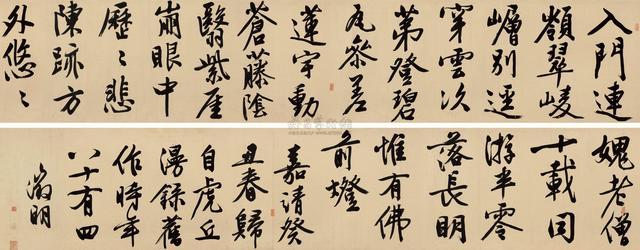 入門連
嶺翠崚
嶒別逕
穿雲次
第登碧
瓦參差
蓮宇動
蒼藤陰
翳紫厓
崩眼中
歷〻悲
陳跡方
外悠〻
媿老僧
十載同
游半零
落長明
惟有佛
前燈
嘉靖癸
丑春歸
自虎丘
漫錄舊
作時年
八十有四
徵明